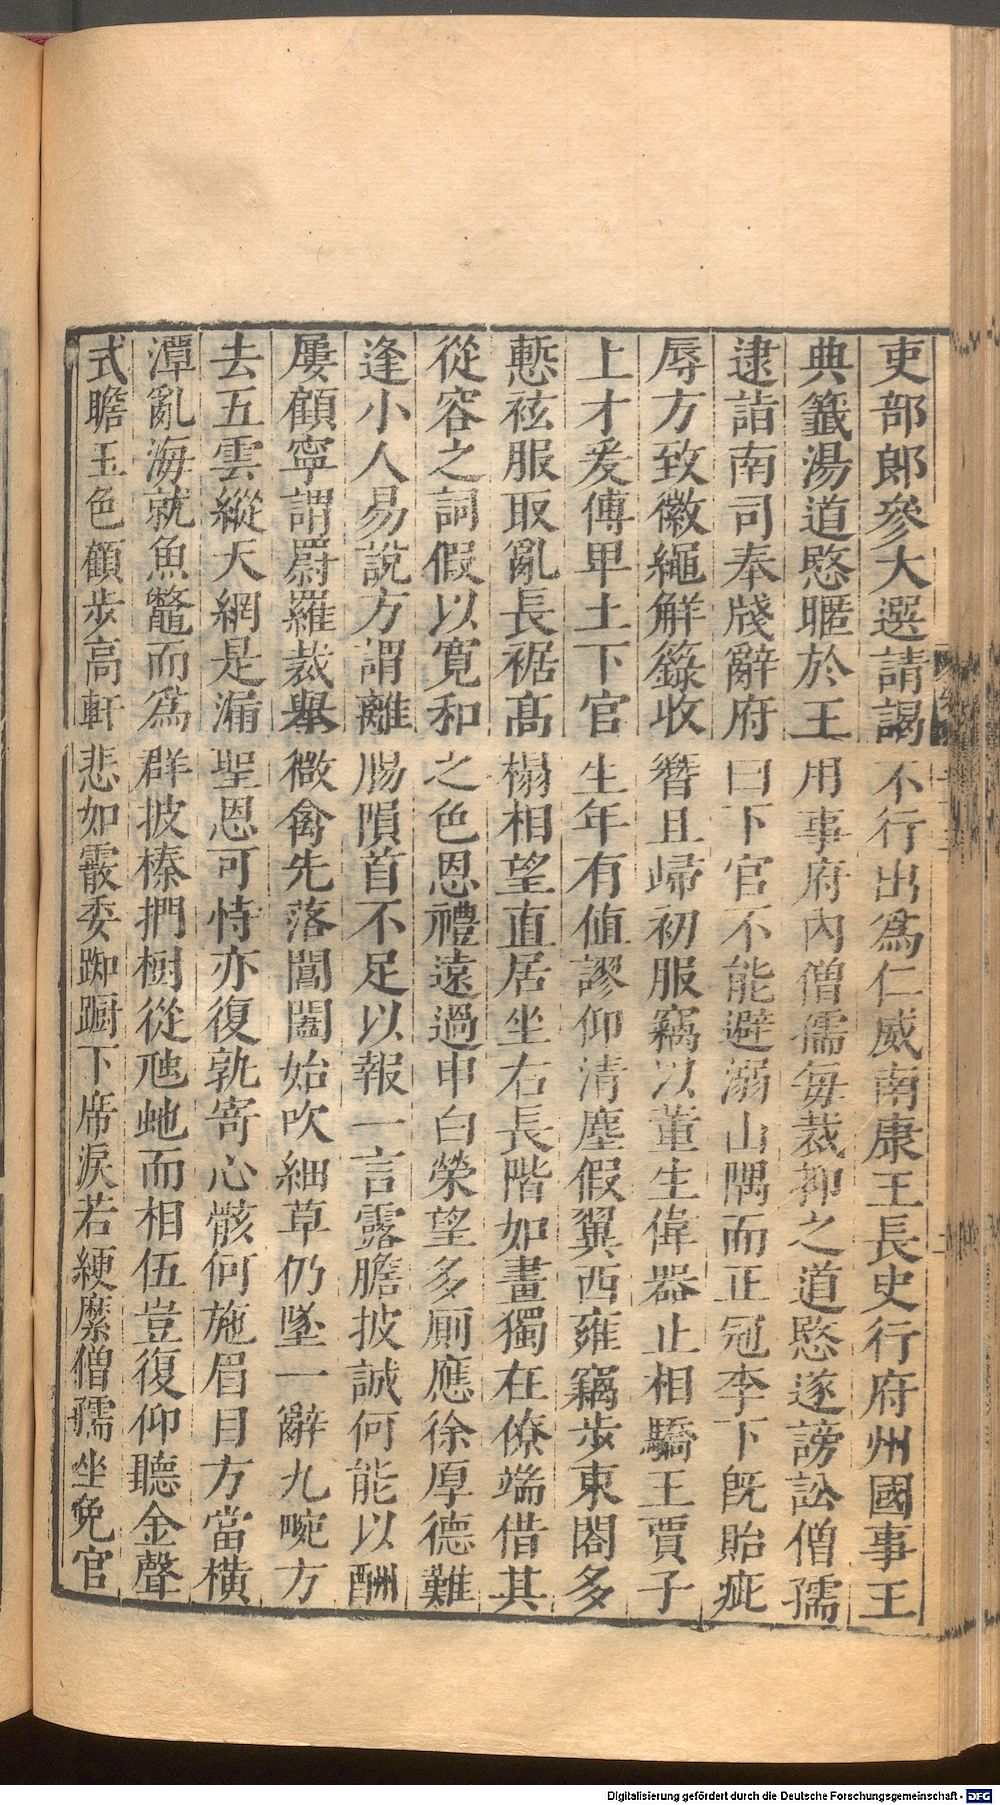 吏部郎參大選請謁不行出爲仁威南康王長史行府州國事王
典籤湯道愍暱於王用事府內僧儒每裁抑之道愍遂謗訟僧孺
逮詣南司奉牋辭府曰下官不能避溺山隅而正冠李下旣貽疵
辱方致徽繩解籙收簪且歸初服竊以董生偉器止相驕王賈子
上才爰傅卑土下官生年有値謬仰清塵假翼西雍竊步東閤多
慙袨服取亂長裾高榻相望直居坐右長階如畫獨在僚端借其
從容之詞假以寬和之色恩禮遠過申白榮望多厠應徐厚德難
逢小人易說方謂離腸隕首不足以報一言露膽披誠何能以酬
屢顧寧謂罻羅裁舉微禽先落閶闔始吹細草仍墜一辭九畹方
去五雲縱天網是漏聖恩可恃亦復孰寄心骸何施眉目方當橫
潭亂海就魚鼈而爲群披榛捫樹從虺虵而相伍豈復仰聽金聲
式瞻玉色顧步高軒悲如霰委踟躕下席淚若綆縻僧孺坐免官
Digitalisierung gefördert durch die Deutsche Forschungsgemeinschaft - DFG